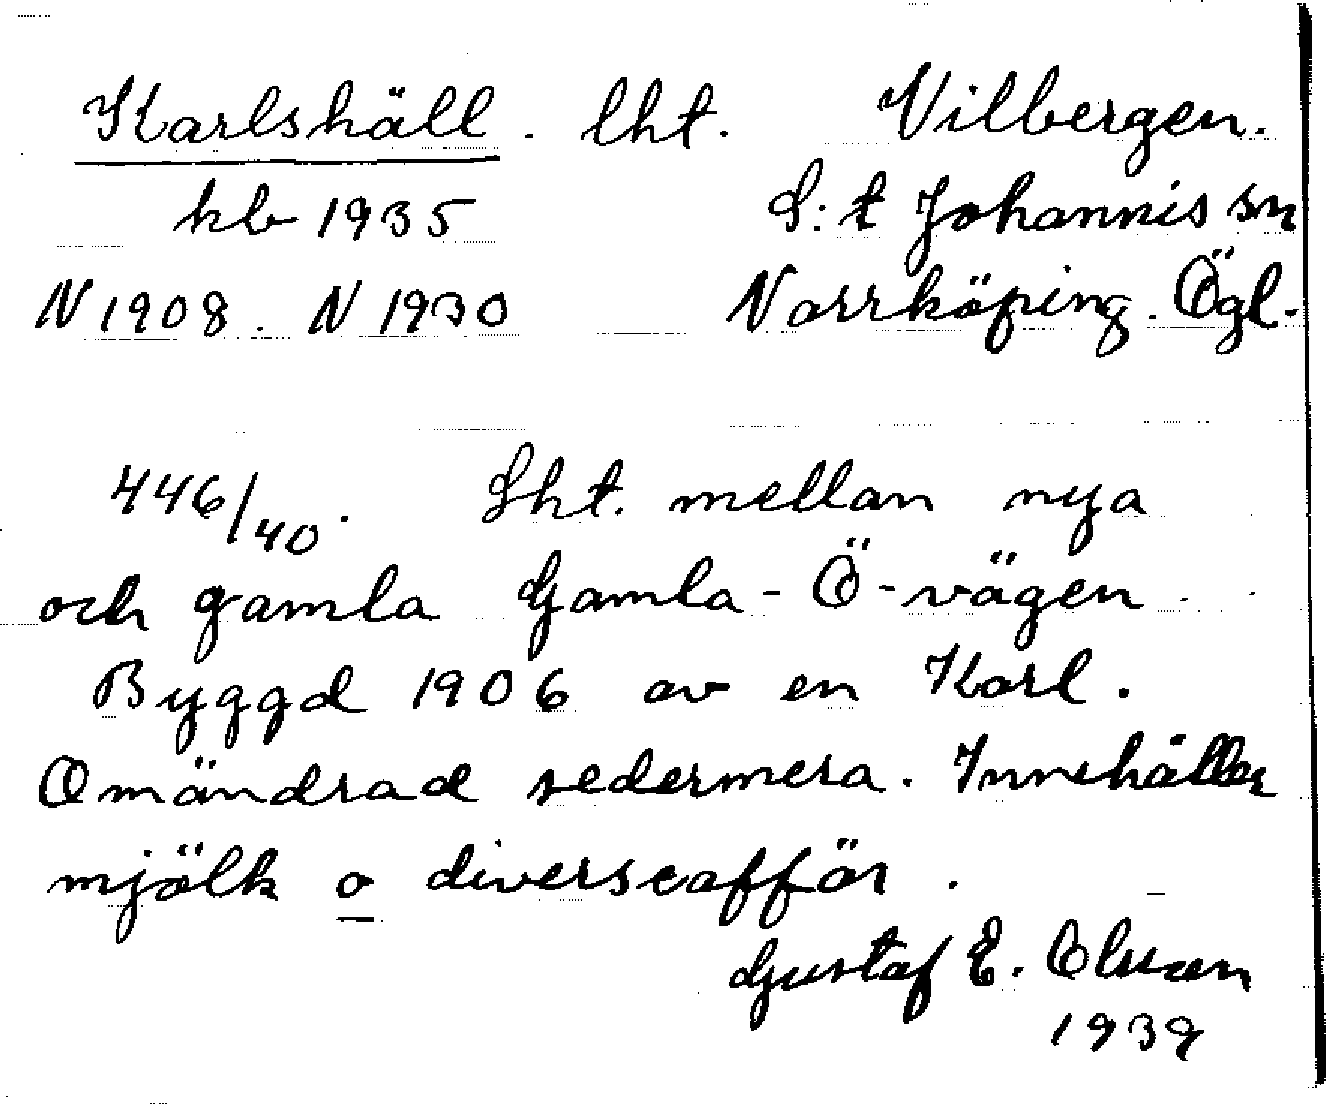 Karlshäll. lht. Vilbergen.
kb 1935 S:t Johannis sn
N 1908. N 1930 Norrköping. Ögl.
446/40. Lht. mellan nya
och gamla Gamla-Ö-vägen
Byggd 1906 av en Karl.
Omändrad sedermera. Innehåller
mjölk o diverseaffär.
Gustaf E. Olsson
1939